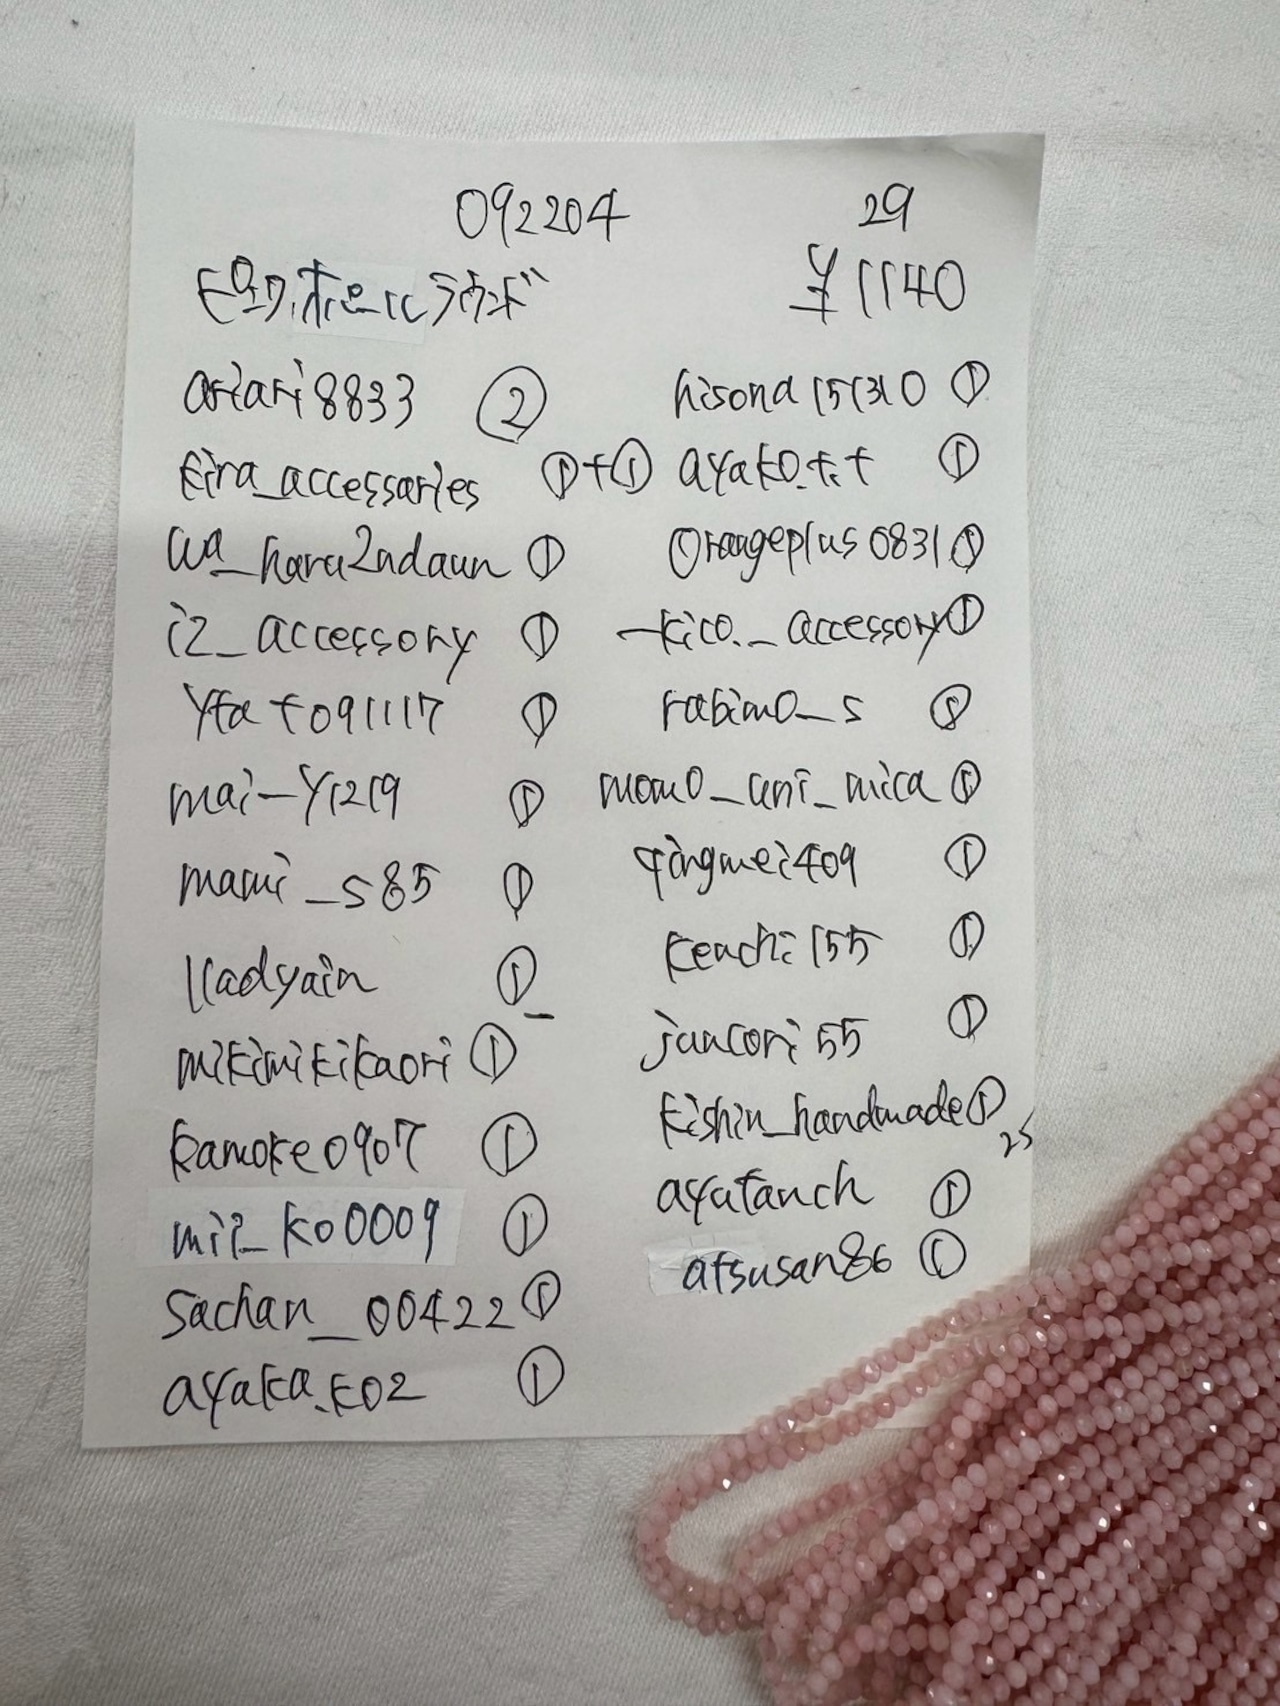 092204
29
ピンクオパールラウンド
¥1140
ariari8833 ②
kira_accessaries ①+①
wa_haru2ndaun ①
i2_accessory ①
yfat091117 ①
mai-y1219 ①
mami_s85 ①
lladyain ①
mikimikikaori ①
kamoke0907 ①
mii_ko0009 ①
sachan_00422 ①
ayaka.k02 ①
hisona151310 ①
ayako.t.t ①
orangeplus0831 ①
_kico._accessory ①
rabimo_s ①
momo_uni_mica ①
qingmei409 ①
kenchi155 ①
juncori55 ①
kishin_handmade ①
25
ayatanch ①
atsusan86 ①